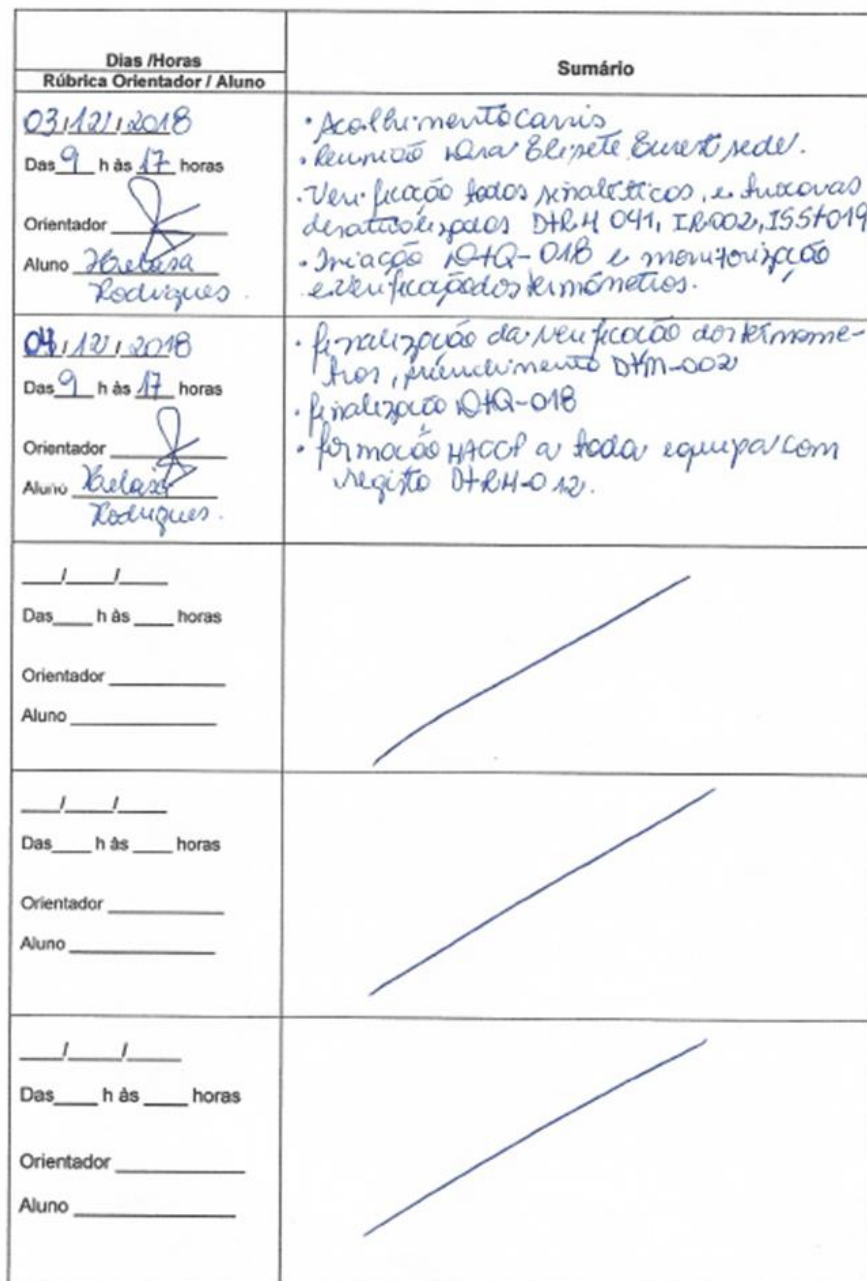 Dias /Horas
Rúbrica Orientador / Aluno
Sumário
03/12/2018
Das 9 h às 17 horas
Orientador
Aluno
Rodrigues.
• Acolhimento carris
• Reunião Elisete Eurest sede.
• Verificação todos sinaléticos, e
desatualizados DTRH 041, IR002, ISST019
• Iniação DTQ-018 e monitorização
e verificação dos termómetros.
04/12/2018
Das 9 h às 17 horas
Orientador
Aluno
Rodrigues.
• finalização da verificação dos termome-
tros, preenchimento DTM-002
• finalização DTQ-018
• formação HACCP a toda equipa com
registo DTRH-012.
___/____/____
Das____ h às ____ horas
Orientador ____________
Aluno ______________
___/____/____
Das____ h às ____ horas
Orientador ____________
Aluno ______________
___/____/____
Das____ h às ____ horas
Orientador ____________
Aluno ______________